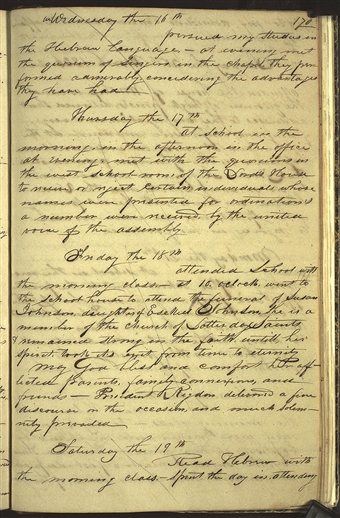 Wednesday the 16th
178
pursued my studies in
the Hebrew Language - at evening met
the quorum of Singers in the chapel they per
formed admirably, concidering the advantages
they have had
Thursday the 17th
At School in the
morning in the afternoon in the office
at evening met with the quorums in
the west school room of the Lords House
to receive or reject certain individuals whose
names were presented for ordinations
a number were received by the united
voice of the assembly
Friday the 18th
attended School with
the morning class - at 10 oclock went to
the school house to attend the funeral of Susan
Johnson, daughter of Esekiel Johnson, she is a
member of the church of Latter day Saints
& remained strong in the faith untill her
spirit took its exit from time to eternity
May God bless and comfort her aff
licted Parents, family connexions, and
friends - President Rigdon delivered a fine
discourse on the occasion, and much solem
nity prevailed
Saturday the 19th
Read Hebrew with
the morning class - spent the day in attending